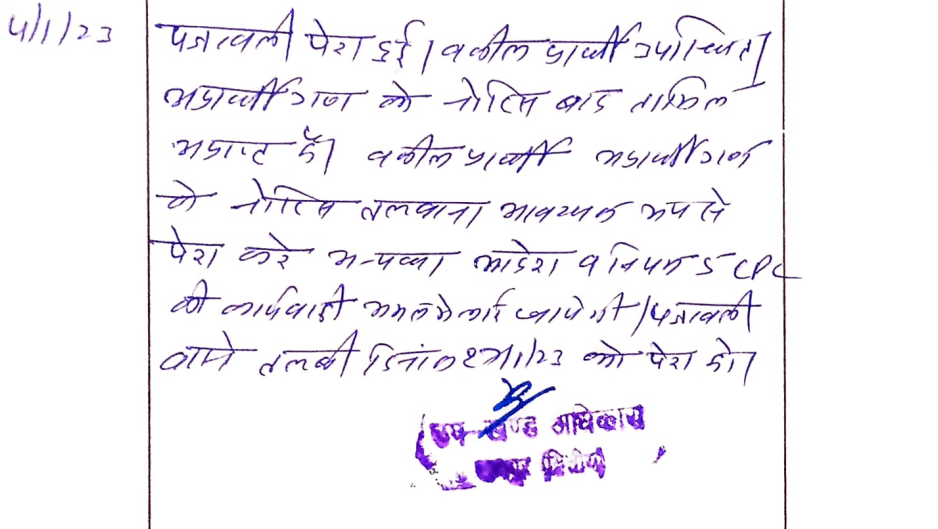 4/1/23
पत्रावली पेश हुई। वकील प्रार्थी उपस्थित।
अप्रार्थीगण को नोटिस बाद तामिल
अप्राप्त है। वकील प्रार्थी अप्रार्थीगण
के नोटिस तलवाना आवश्यक रूप से
पेश करे अन्यथा आदेश 9 नियम 5 CPC
की कार्यवाही अमल में लाई जायेगी। पत्रावली
वास्ते तलबी दिनांक /1/23 को पेश हो।
उप खण्ड अधिकारी